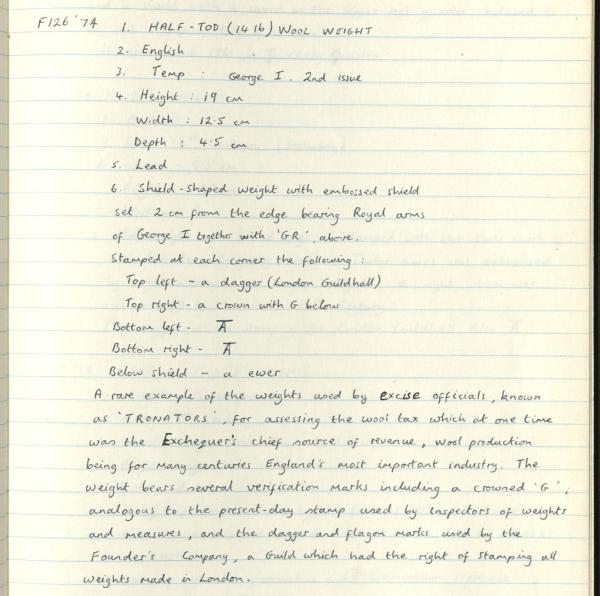 F126 '74 1. HALF-TOD (14 lb) WOOL WEIGHT
2. English
3. Temp : George I. 2nd issue
4. Height : 19 cm
Width : 12.5 cm
Depth : 4.5 cm
5. Lead
6. Shield-shaped weight with embossed shield
set 2 cm from the edge bearing Royal arms
of George I together with 'GR' above.
Stamped at each corner the following :
Top left - a dagger (London Guildhall)
Top right - a crown with G below
Bottom left - A
Bottom right - A
Below shield - a ewer
A rare example of the weights used by excise officials, known
as 'TRONATORS', for assessing the wool tax which at one time
was the Exchequer's chief source of revenue, wool production
being for many centuries England's most important industry. The
weight bears several verification marks including a crowned 'G',
analogous to the present-day stamp used by inspectors of weights
and measures, and the dagger and flagon marks used by the
Founder's Company, a Guild which had the right of stamping all
weights made in London.